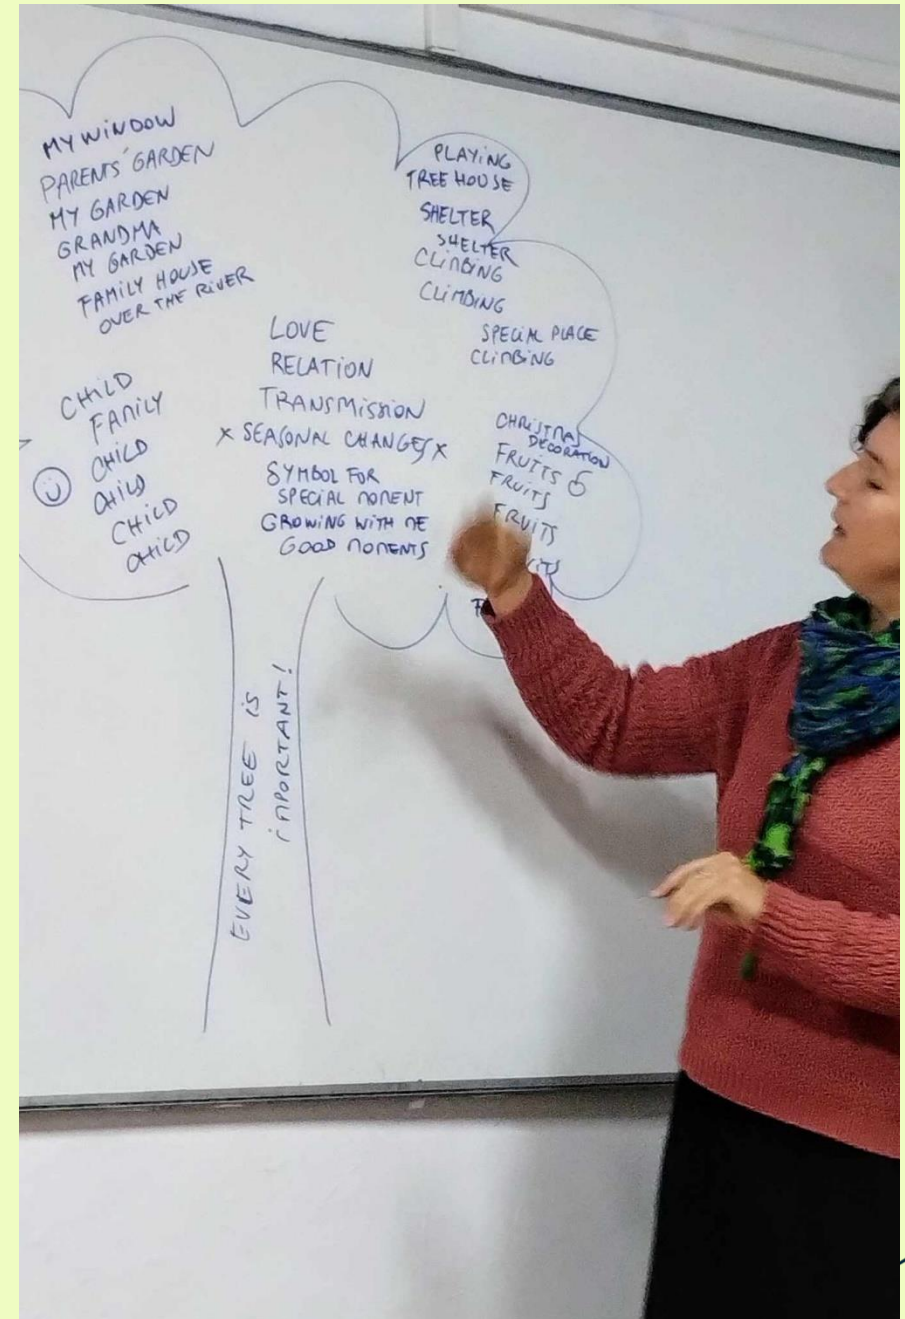 MY WINDOW
PARENTS' GARDEN
MY GARDEN
GRANDMA
MY GARDEN
FAMILY HOUSE
OVER THE RIVER
CHILD
FAMILY
CHILD
CHILD
CHILD
CHILD
LOVE
RELATION
TRANSMISSION
x SEASONAL CHANGES x
SYMBOL FOR
SPECIAL MOMENT
GROWING WITH ME
GOOD MOMENTS
PLAYING
TREE HOUSE
SHELTER
SHELTER
CLIMBING
CLIMBING
SPECIAL PLACE
CLIMBING
CHRISTMAS
DECORATION
FRUITS
FRUITS
FRUITS
EVERY TREE IS
IMPORTANT!